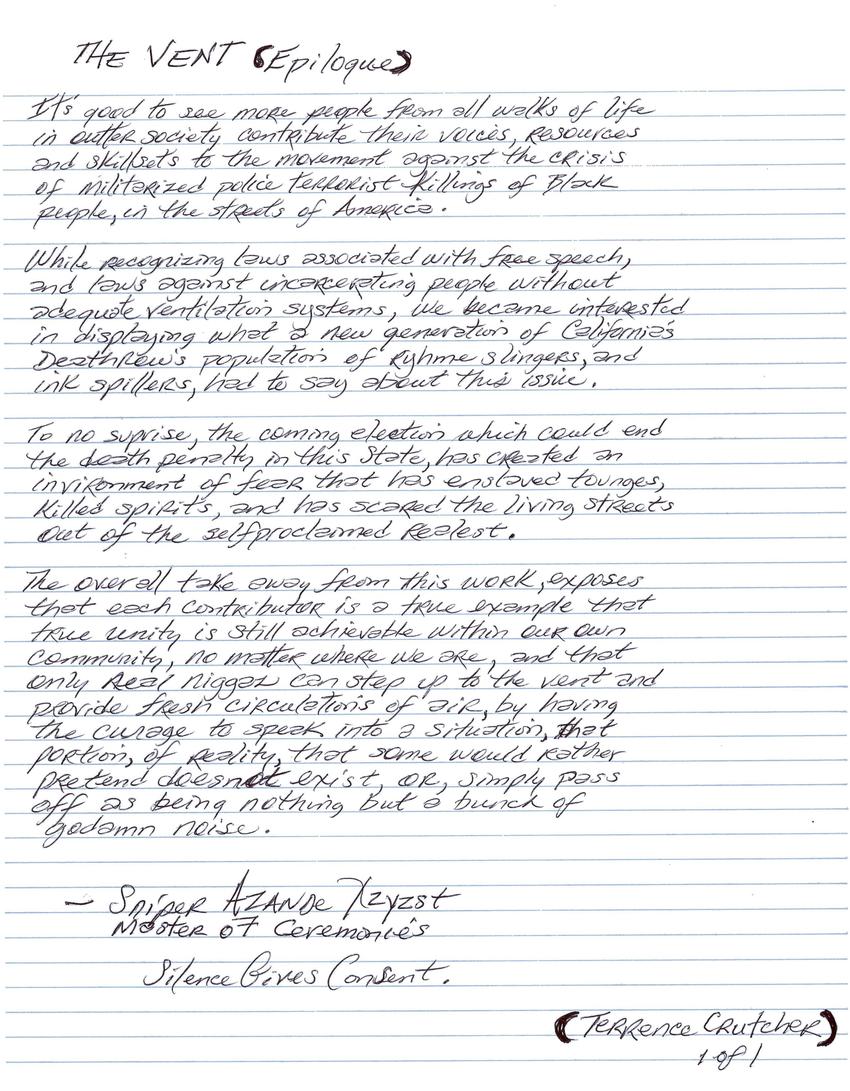 THE VENT (Epilogue)
It's good to see more people from all walks of life
in outter society contribute their voices, resources
and skillsets to the movement against the crisis
of militarized police terrorist killings of Black
people, in the streets of America.
While recognizing laws associated with free speech,
and laws against incarcerating people without
adequate ventilation systems, we became interested
in displaying what a new generation of California's
DeathRow's population of Ryhme slingers, and
ink spillers, had to say about this issue.
To no suprise, the coming election which could end
the death penalty in this State, has created an
invironment of fear that has enslaved tounges,
killed spirits, and has scared the living streets
out of the selfproclaimed Realest.
The overall take away from this work, exposes
that each contributor is a true example that
true unity is still achievable within our own
community, no matter where we are, and that
only Real niggaz can step up to the vent and
provide fresh circulations of air, by having
the curage to speak into a situation, that
portion, of reality, that some would rather
pretend doesnot exist, or, simply pass
off as being nothing but a bunch of
godamn noise.
— Sniper AZANDE Xzyzst
Master of Ceremonies
Silence Gives Consent.
(Terrence Crutcher)
1 of 1